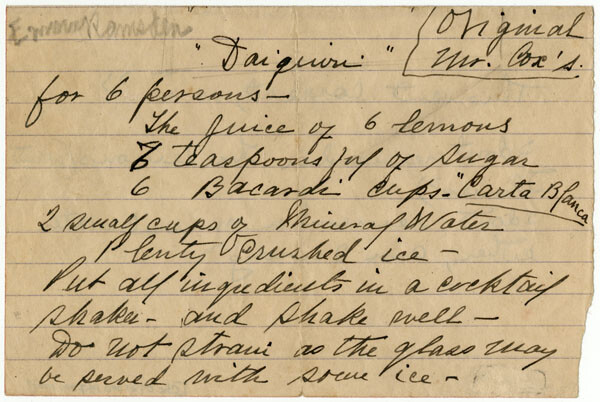 Original
Mr. Cox's.
"Daiquiri"
for 6 persons—
The juice of 6 lemons
6 teaspoons ful of sugar
6 Bacardi cups—"Carta Blanca
2 small cups of Mineral Water
Plenty crushed ice—
Put all ingredients in a cocktail
shaker— and shake well—
Do not strain as the glass may
be served with some ice—